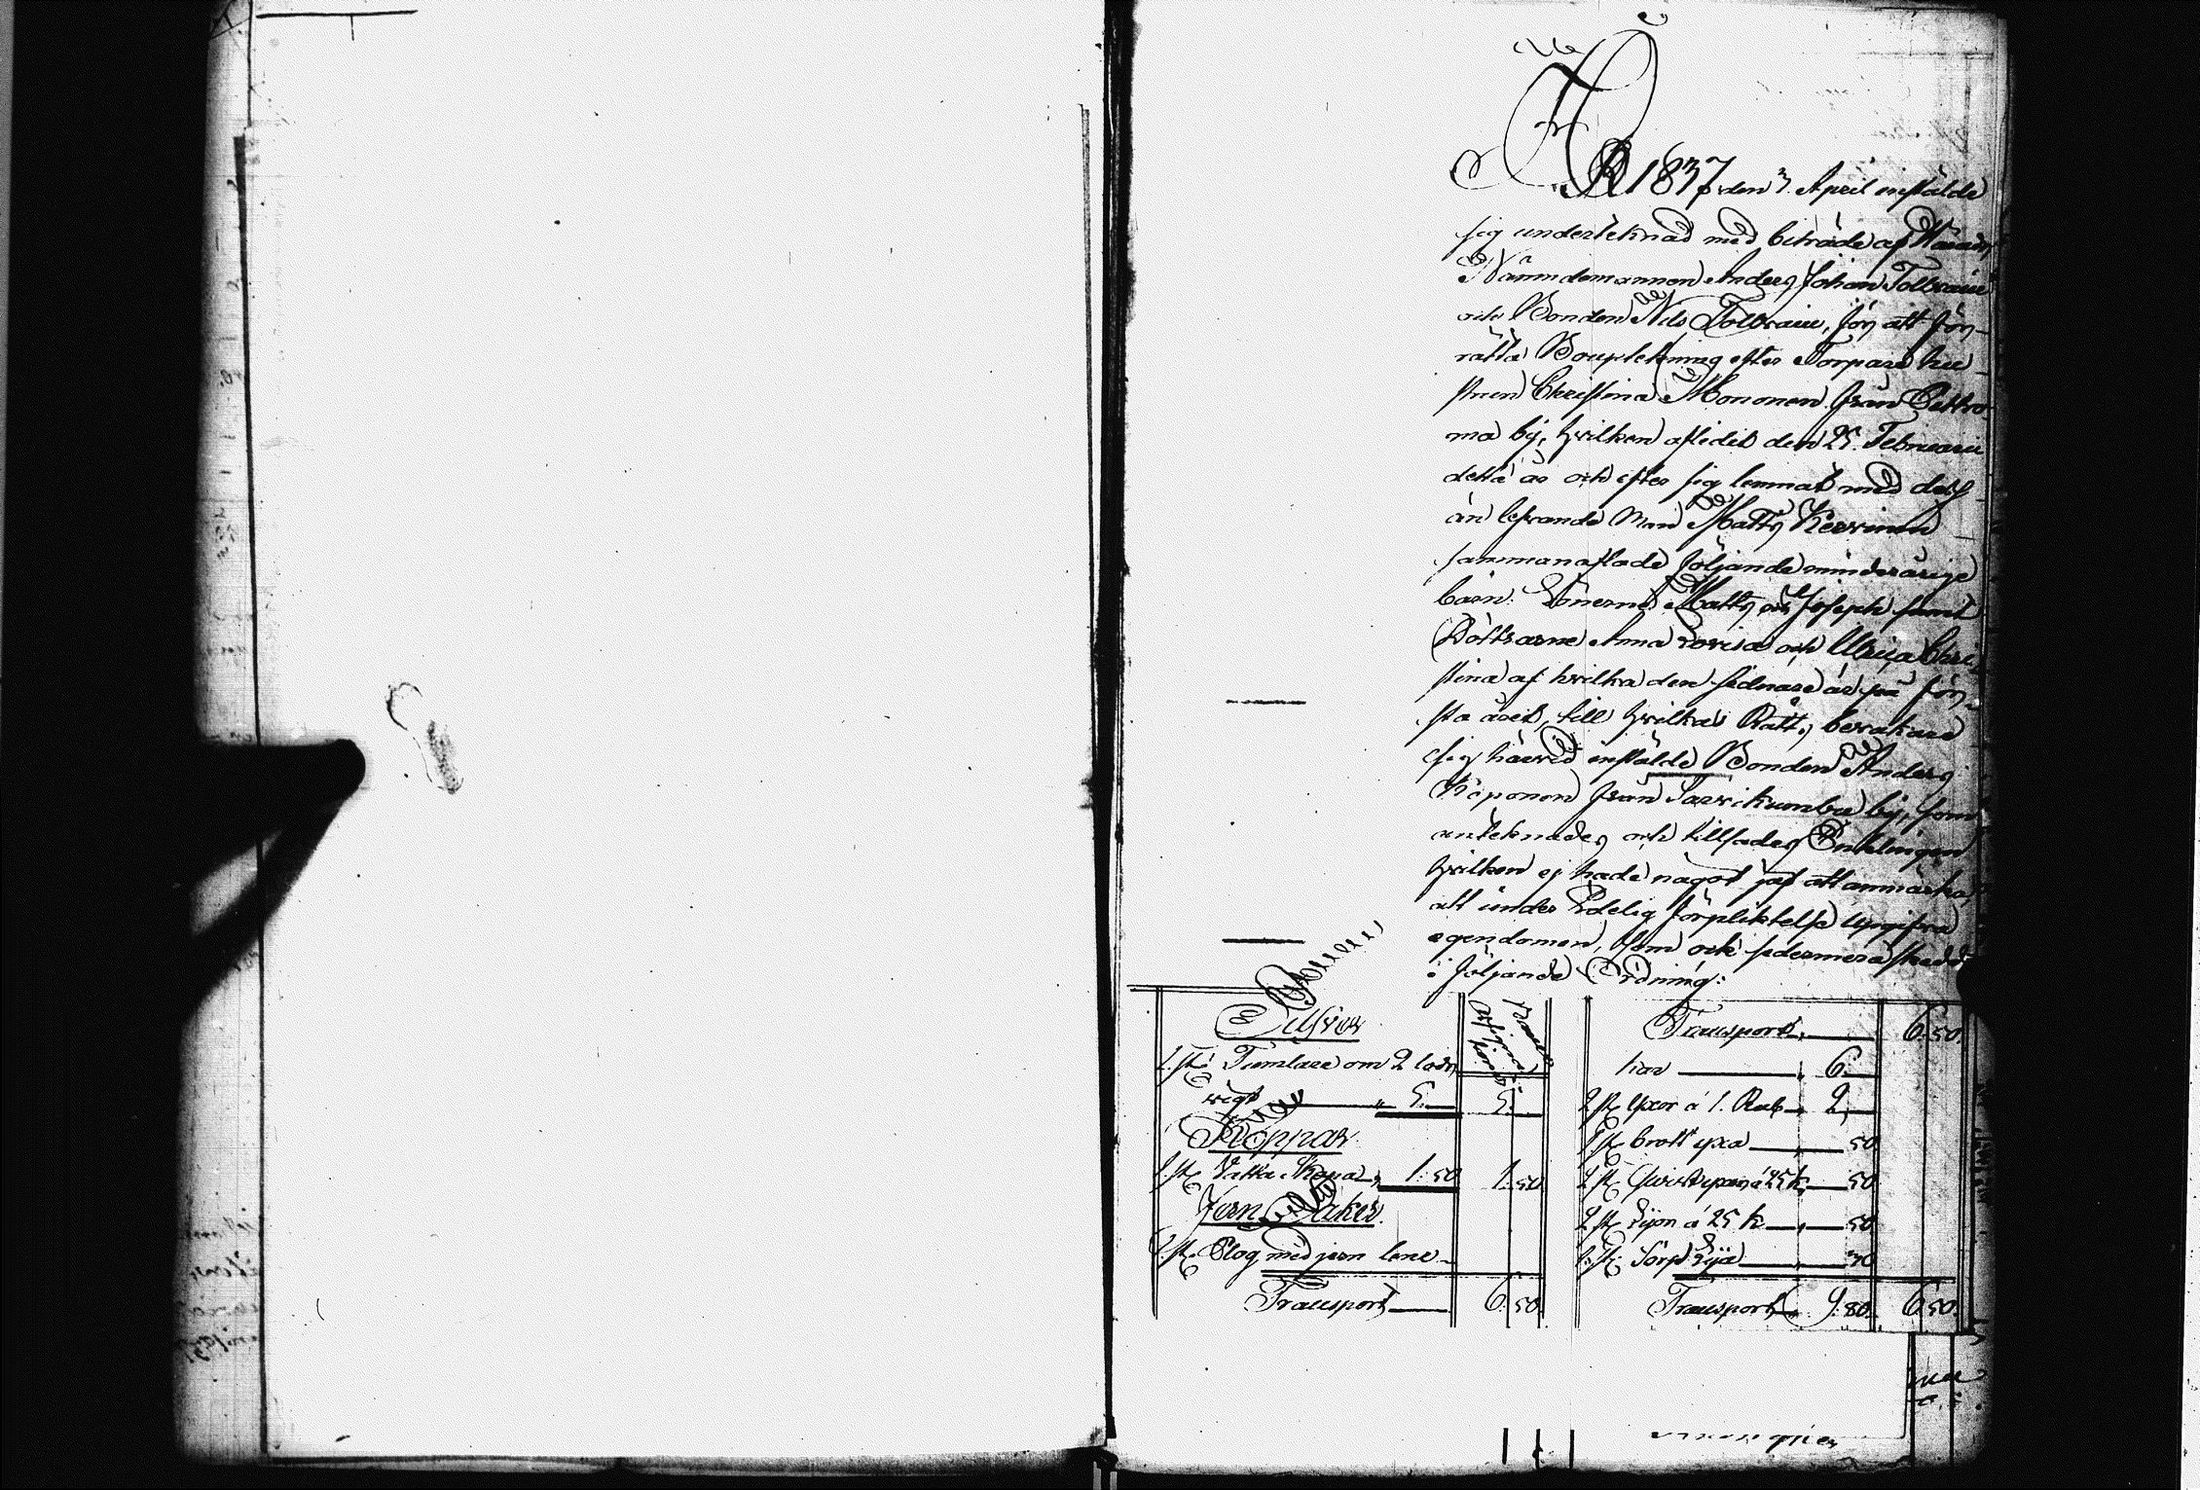 År 1837 den 3 April instälde
sig underteknad med biträde af Härads
Nämndemannen Anders Johan Tolvain
och Bonden Nils Tolvain, för att för-
rätta Boupptekning efter Torpare hu-
strun Christina Mononen från Pettro
ma by, hvilken aflidit den 25 Februarii
detta år och efter sig lemnat med dess
än lefvande Man Matts Kervinen
sammanaflade följande minderårige
barn: Sönerne Matts och Joseph samt
Döttrarne Anna Lovisa och Ulrica Chri
stina af hvilka den sednare är på för-
sta året, till hvilkas Rätts bevakare
sig härvid instälde Bonden Anders
Köponen från by, som
anteknades och tillsades Enklingen
hvilken ej hade något jäf att anmärka,
att under Edelig förpliktelse uppgifva
egendomen, som ock sedermera skedde
i följande Ordning:
Silfver
1. st. Tumlare om 2 lods
vigt 5. 5.
Koppar
1. st. Kopa 1:50 1:50
Jern Saker
1. st. Plog med jern
Transport 6:50
Transport 6:50
6.
2 st. yxor á 1. Rub 2,
1 st. brott yxa 50
2 st. á 25 k. 50
2 st. á 25 k. 50
1. st. 30
Transport 9:80. 6:50.